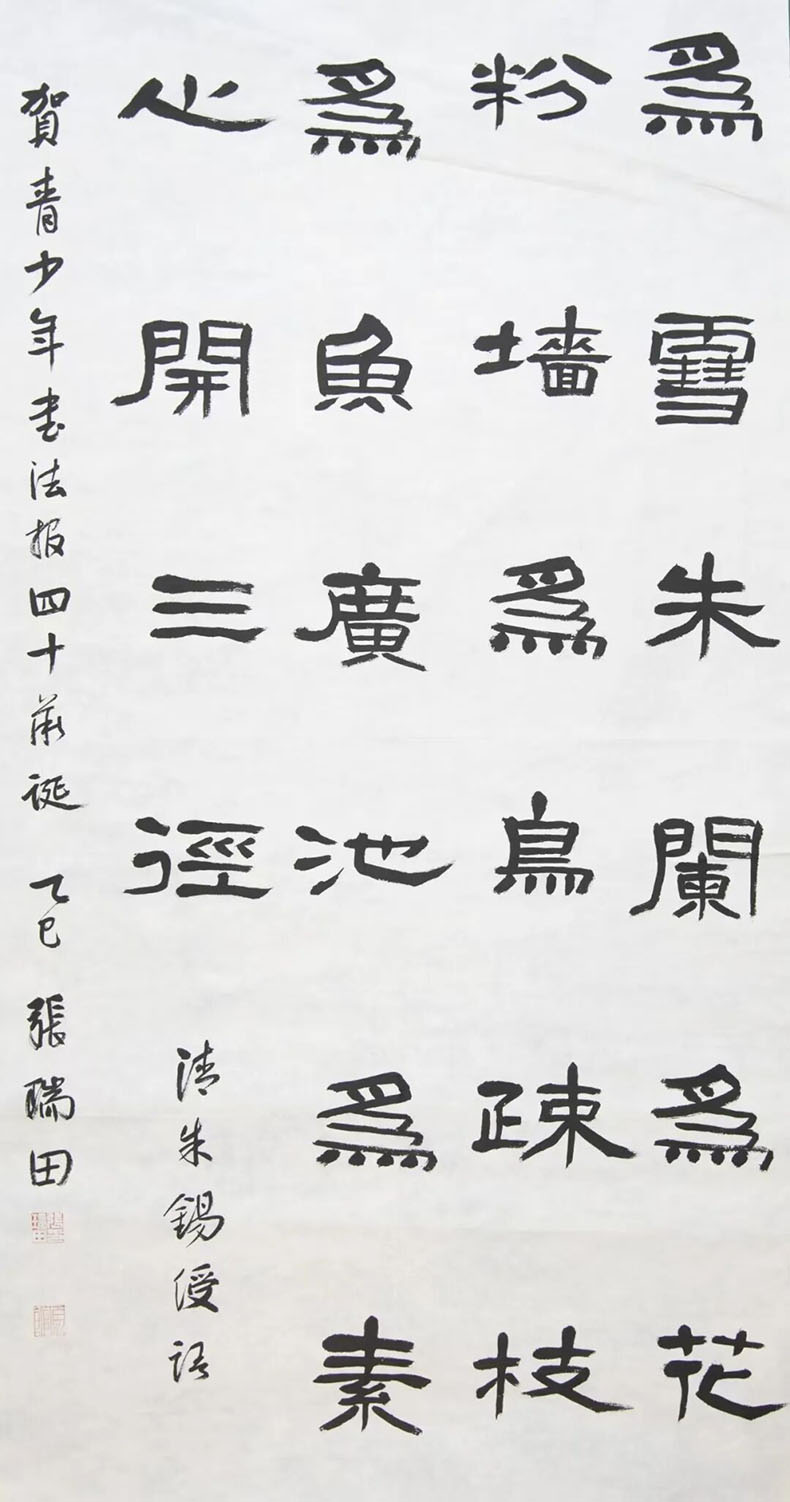 爲雪朱闌爲花
粉墙爲鳥疎枝
爲魚廣池爲素
心開三徑
清朱錫綬語
賀青少年書法报四十歲誕 乙巳 張瑞田